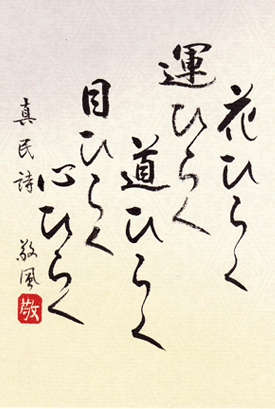 花ひらく
運ひらく
道ひらく
目ひらく
心ひらく
真民詩 敬風
敬